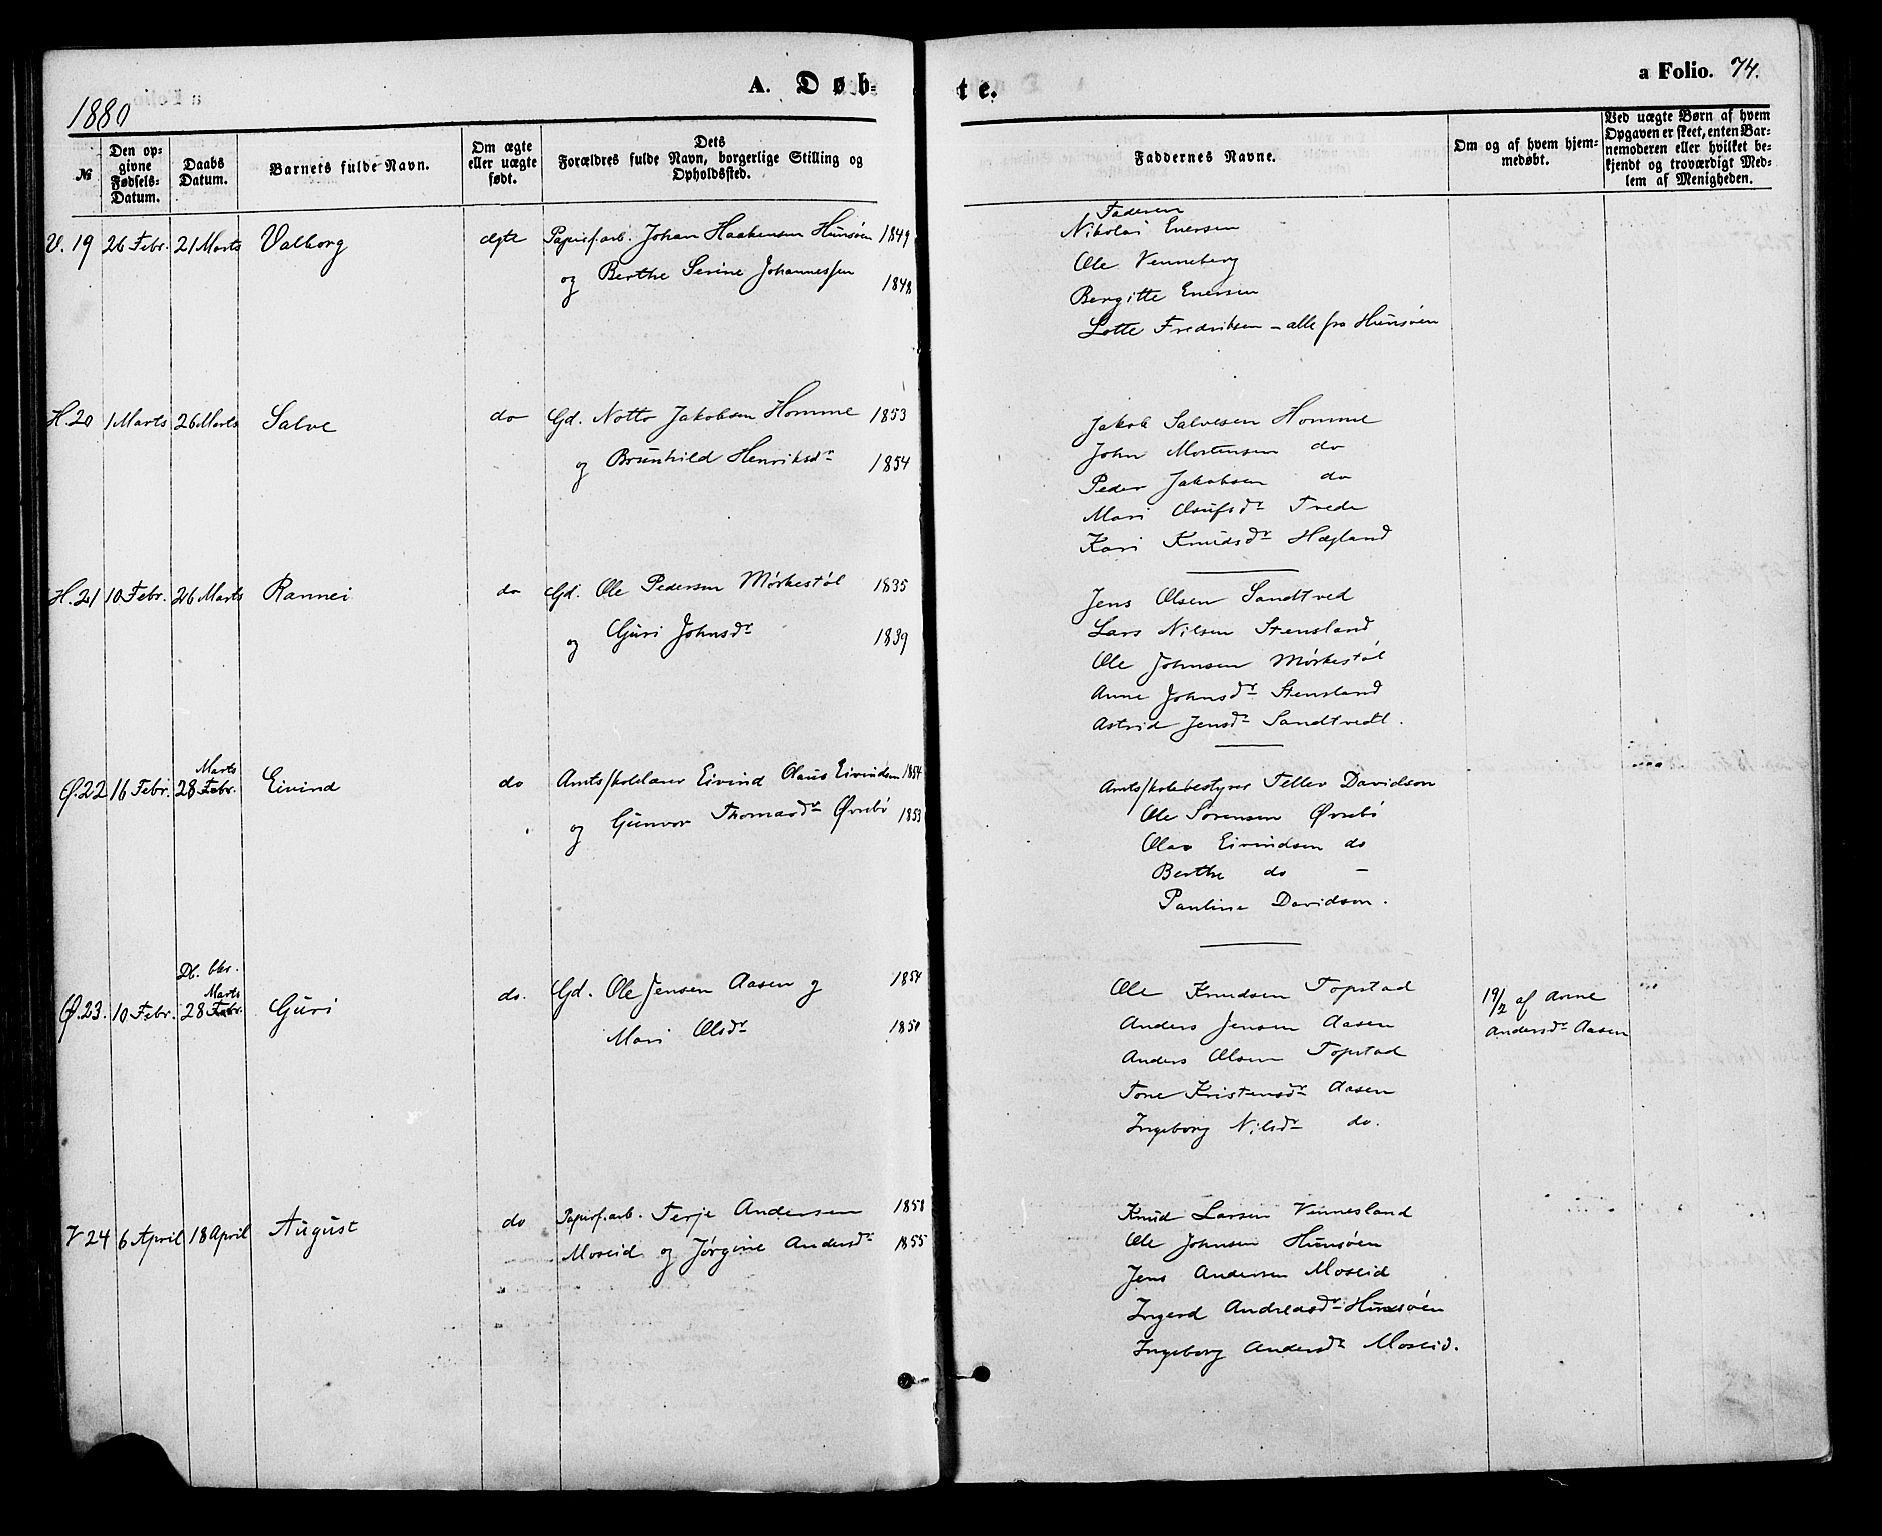 A. Døb-
te.
a Folio. 74.
1880
№
Den op-
givne
Fødsels-
Datum.
Daabs
Datum.
Barnets fulde Navn.
Om ægte
eller uægte
født.
Dets
Forældres fulde Navn, borgerlige Stilling og
Opholdssted.
Faddernes Navne.
Om og af hvem hjem-
medøbt.
Ved uægte Børn af hvem
Opgaven er skeet, enten Bar-
nemoderen eller hvilket be-
kjendt og troværdigt Med-
lem af Menigheden.
V. 19 26 Febr. 21 Marts Valborg ægte Papirf.arb. Johan Haakensen Hunsøen 1849
og Berthe Serine Johannessen 1848
Faderen
Nikolai Enersen
Ole Venneberg
Bergitte Enersen
Lotte Fredriksen - alle fra Hunsøen
H. 20 1 Marts 26 Marts Salve do Gd. Notto Jakobsen Homme 1853
og Brunhild Henriksdr 1854
Jakob Salvesen Homme
John Mortensen do
Peder Jakobsen do
Mari Olsufsdr Trede
Kari Knudsdr Hægland
H. 21 10 Febr. 26 Marts Rannei do Gd. Ole Pedersen Mørkestøl 1835
og Guri Johnsdr 1839
Jens Olsen Sandtved
Lars Nilsen Stensland
Ole Johnsen Mørkestøl
Anne Johnsdr Stensland
Astrid Jensdr Sandtvedt.
Marts
Ø. 22 16 Febr. 28 Febr. Eivind do Amtsskolelærer Eivind Olaus Eivindsen 1854
og Gunvor Thomasdr Øvrebø 1853
Amtsskolebestyrer Tellev Davidson
Ole Sørensen Øvrebø
Olav Eivindsen do
Berthe do -
Pauline Davidson.
Db. bkr.
Marts
Ø. 23. 10 Febr. 28 Febr. Guri do. Gd. Ole Jensen Aasen og 1854
Mari Olsdr 1850
Ole Knudsen Topstad
Anders Jensen Aasen
Anders Olsen Topstad
Tone Kristensdr Aasen
Ingeborg Nilsdr do.
19/2 af Anne
Andersdr Aasen
V 24 6 April 18 April August do Papirf.arb. Terje Andersen 1858
Moseid og Jørgine Andersdr 1855
Knud Larsen Vennesland
Ole Johnsen Hunsøen
Jens Andersen Moseid
Ingerd Andreasdr Hunsøen
Ingeborg Andersdr Moseid.